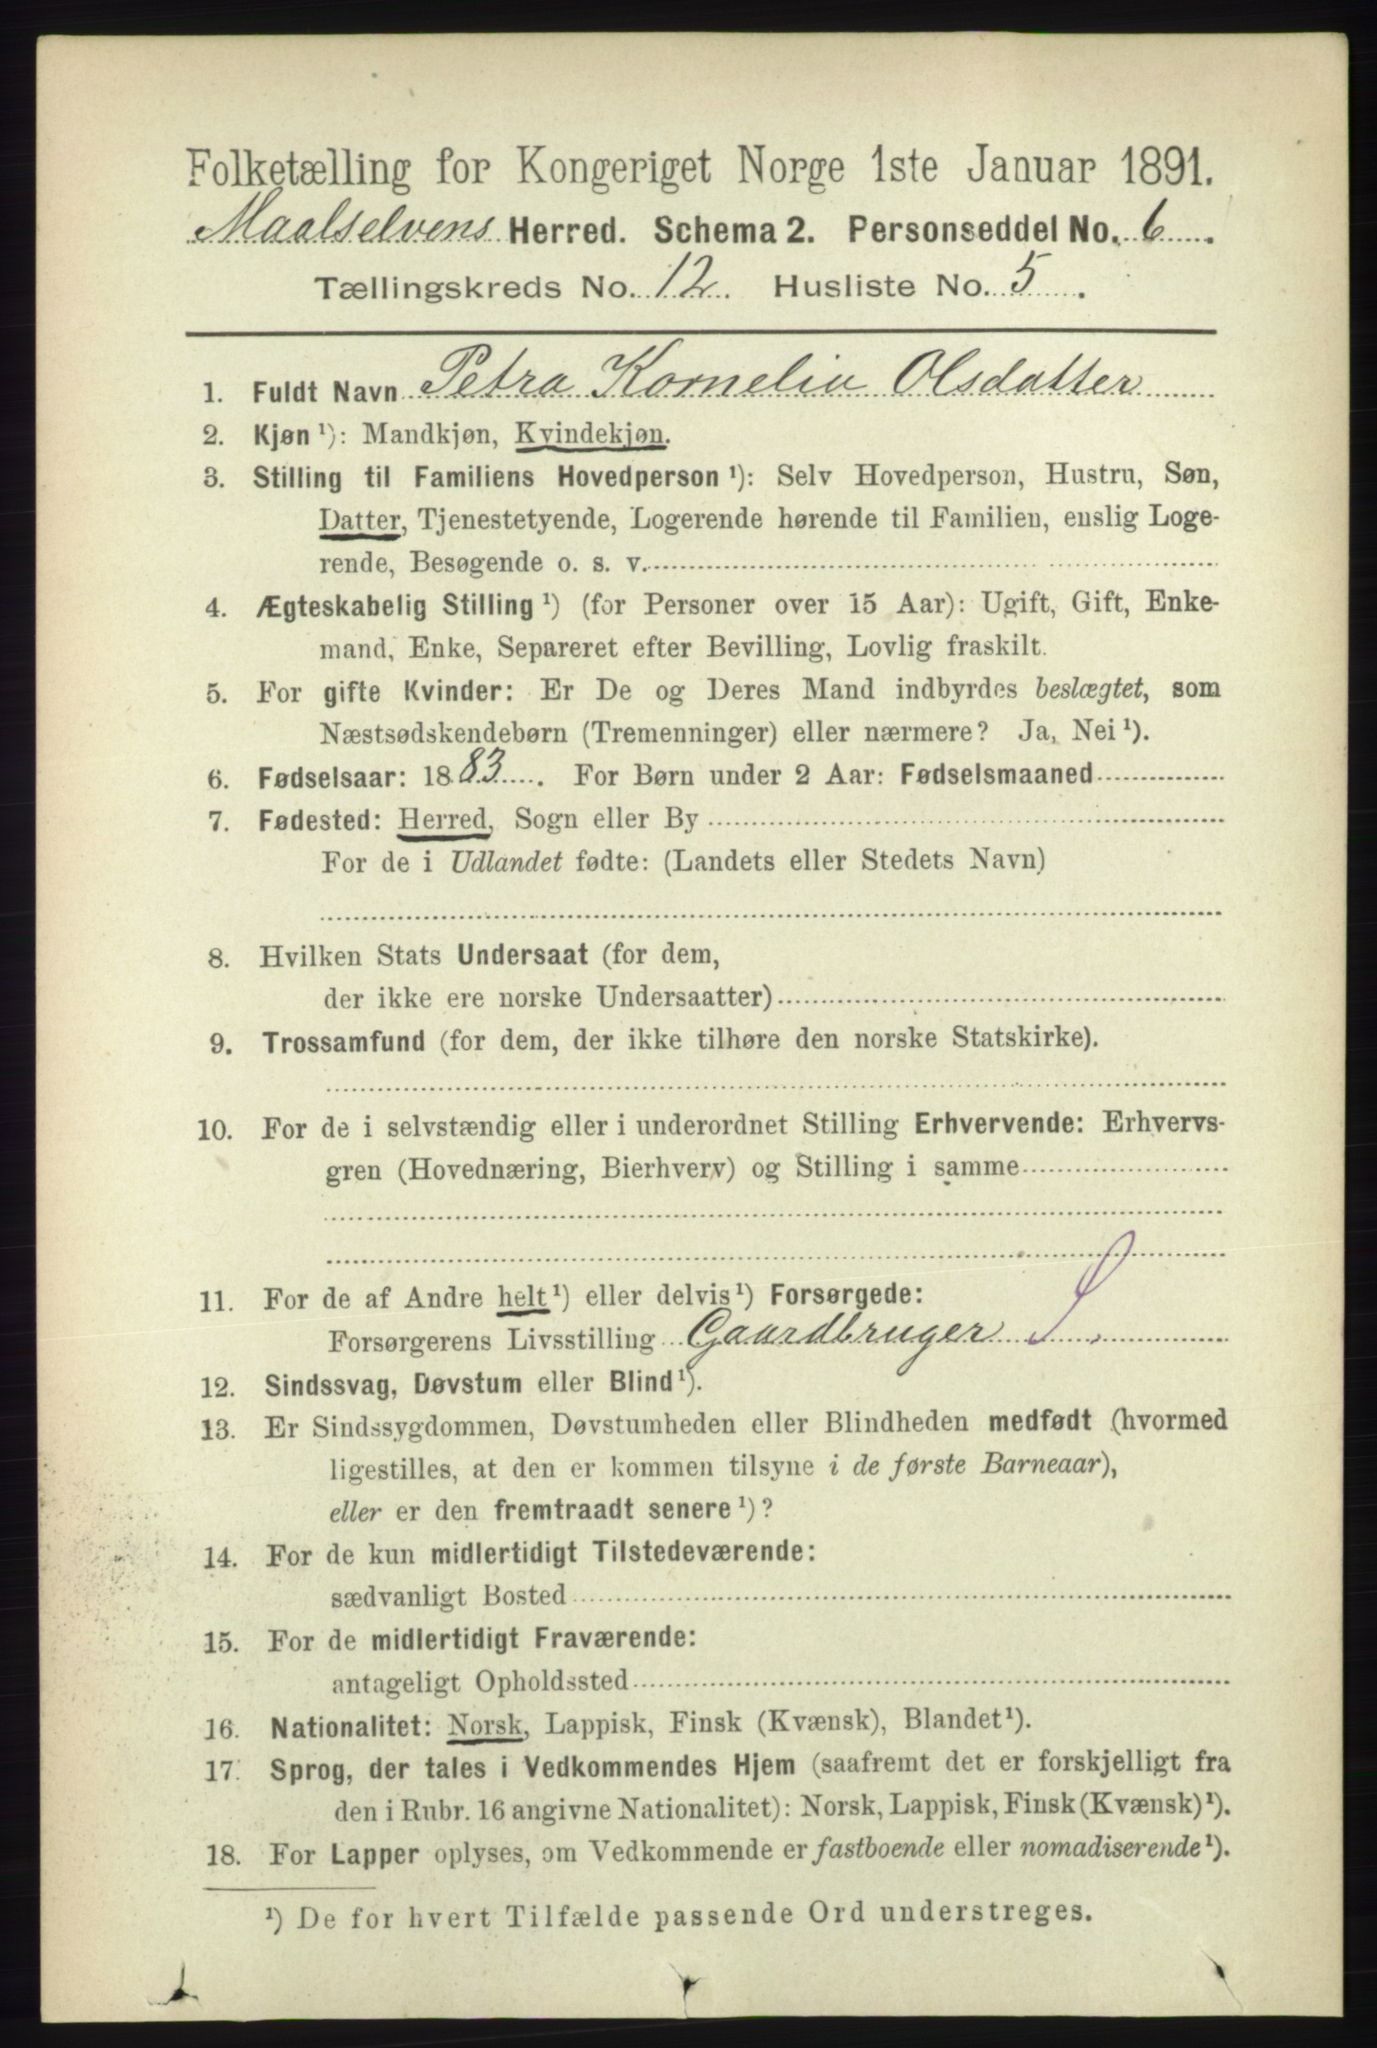 Folketælling for Kongeriget Norge 1ste Januar 1891.
Maalselvens Herred. Schema 2. Personseddel No. 6.
Tællingskreds No. 12. Husliste No. 5.
1. Fuldt Navn Petra Kornelia Olsdatter
2. Kjøn ¹): Mandkjøn, Kvindekjøn.
3. Stilling til Familiens Hovedperson ¹): Selv Hovedperson, Hustru, Søn,
Datter, Tjenestetyende, Logerende hørende til Familien, enslig Loge-
rende, Besøgende o. s. v.
4. Ægteskabelig Stilling ¹) (for Personer over 15 Aar): Ugift, Gift, Enke-
mand, Enke, Separeret efter Bevilling, Lovlig fraskilt.
5. For gifte Kvinder: Er De og Deres Mand indbyrdes beslægtet, som
Næstsødskendebørn (Tremenninger) eller nærmere? Ja, Nei ¹).
6. Fødselsaar: 1883. For Børn under 2 Aar: Fødselsmaaned
7. Fødested: Herred, Sogn eller By
For de i Udlandet fødte: (Landets eller Stedets Navn)
8. Hvilken Stats Undersaat (for dem,
der ikke ere norske Undersaatter)
9. Trossamfund (for dem, der ikke tilhøre den norske Statskirke).
10. For de i selvstændig eller i underordnet Stilling Erhvervende: Erhvervs-
gren (Hovednæring, Bierhverv) og Stilling i samme
11. For de af Andre helt ¹) eller delvis ¹) Forsørgede:
Forsørgerens Livsstilling Gaardbruger S.
12. Sindssvag, Døvstum eller Blind ¹).
13. Er Sindssygdommen, Døvstumheden eller Blindheden medfødt (hvormed
ligestilles, at den er kommen tilsyne i de første Barneaar),
eller er den fremtraadt senere ¹)?
14. For de kun midlertidigt Tilstedeværende:
sædvanligt Bosted
15. For de midlertidigt Fraværende:
antageligt Opholdssted
16. Nationalitet: Norsk, Lappisk, Finsk (Kvænsk), Blandet ¹).
17. Sprog, der tales i Vedkommendes Hjem (saafremt det er forskjelligt fra
den i Rubr. 16 angivne Nationalitet): Norsk, Lappisk, Finsk (Kvænsk) ¹).
18. For Lapper oplyses, om Vedkommende er fastboende eller nomadiserende ¹).
¹) De for hvert Tilfælde passende Ord understreges.